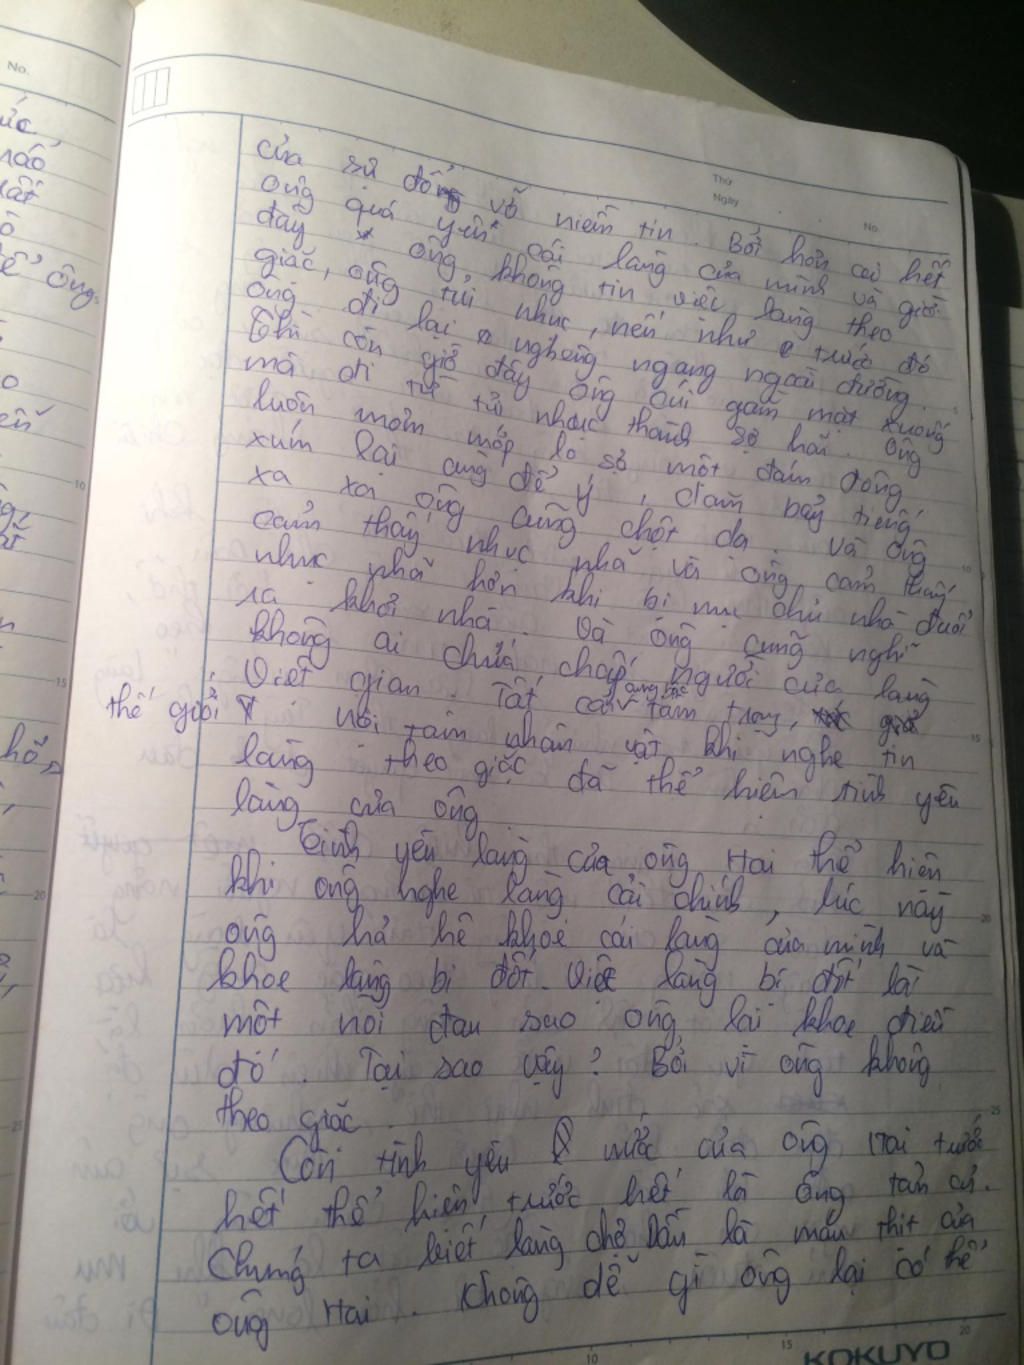 No.
Thứ
Ngày
No.
của sự đổ vỡ niềm tin. Bởi hơn ai hết
ông quá yêu cái làng của mình và giờ
đây ông không tin việc làng theo
giặc, ông tủi nhục, nếu như trước đó
ông đi lại nghênh ngang ngoài đường.
Thì còn giờ đây ông cúi gằm mặt xuống
mà đi từ tủi nhục thành sợ hãi. Ông
luôn nơm nớp lo sợ một đám đông
xúm lại cũng để ý, dăm bảy tiếng
xa xa ông cũng chột dạ. Và ông
cảm thấy nhục nhã và ông cảm thấy
nhục nhã hơn khi bị mụ chủ nhà đuổi
ra khỏi nhà. Và ông cũng nghĩ
không ai chứa chấp người của làng
Việt gian. Tất cả tâm trạng,
thế giới nội tâm nhân vật khi nghe tin
làng theo giặc đã thể hiện tình yêu
làng của ông
Tình yêu làng của ông Hai thể hiện
khi ông nghe làng cải chính, lúc này
ông hả hê khoe cái làng của mình và
khoe làng bị đốt. Việc làng bị đốt là
một nỗi đau sao ông lại khoe điều
đó. Tại sao vậy? Bởi vì ông không
theo giặc.
Còn tình yêu nước của ông Hai trước
hết thể hiện trước hết là ông tản cư.
Chúng ta biết làng chợ Dầu là máu thịt của
ông Hai. Không dễ gì ông lại có thể
5
10
15
20
25
10
15
20
KOKUYO